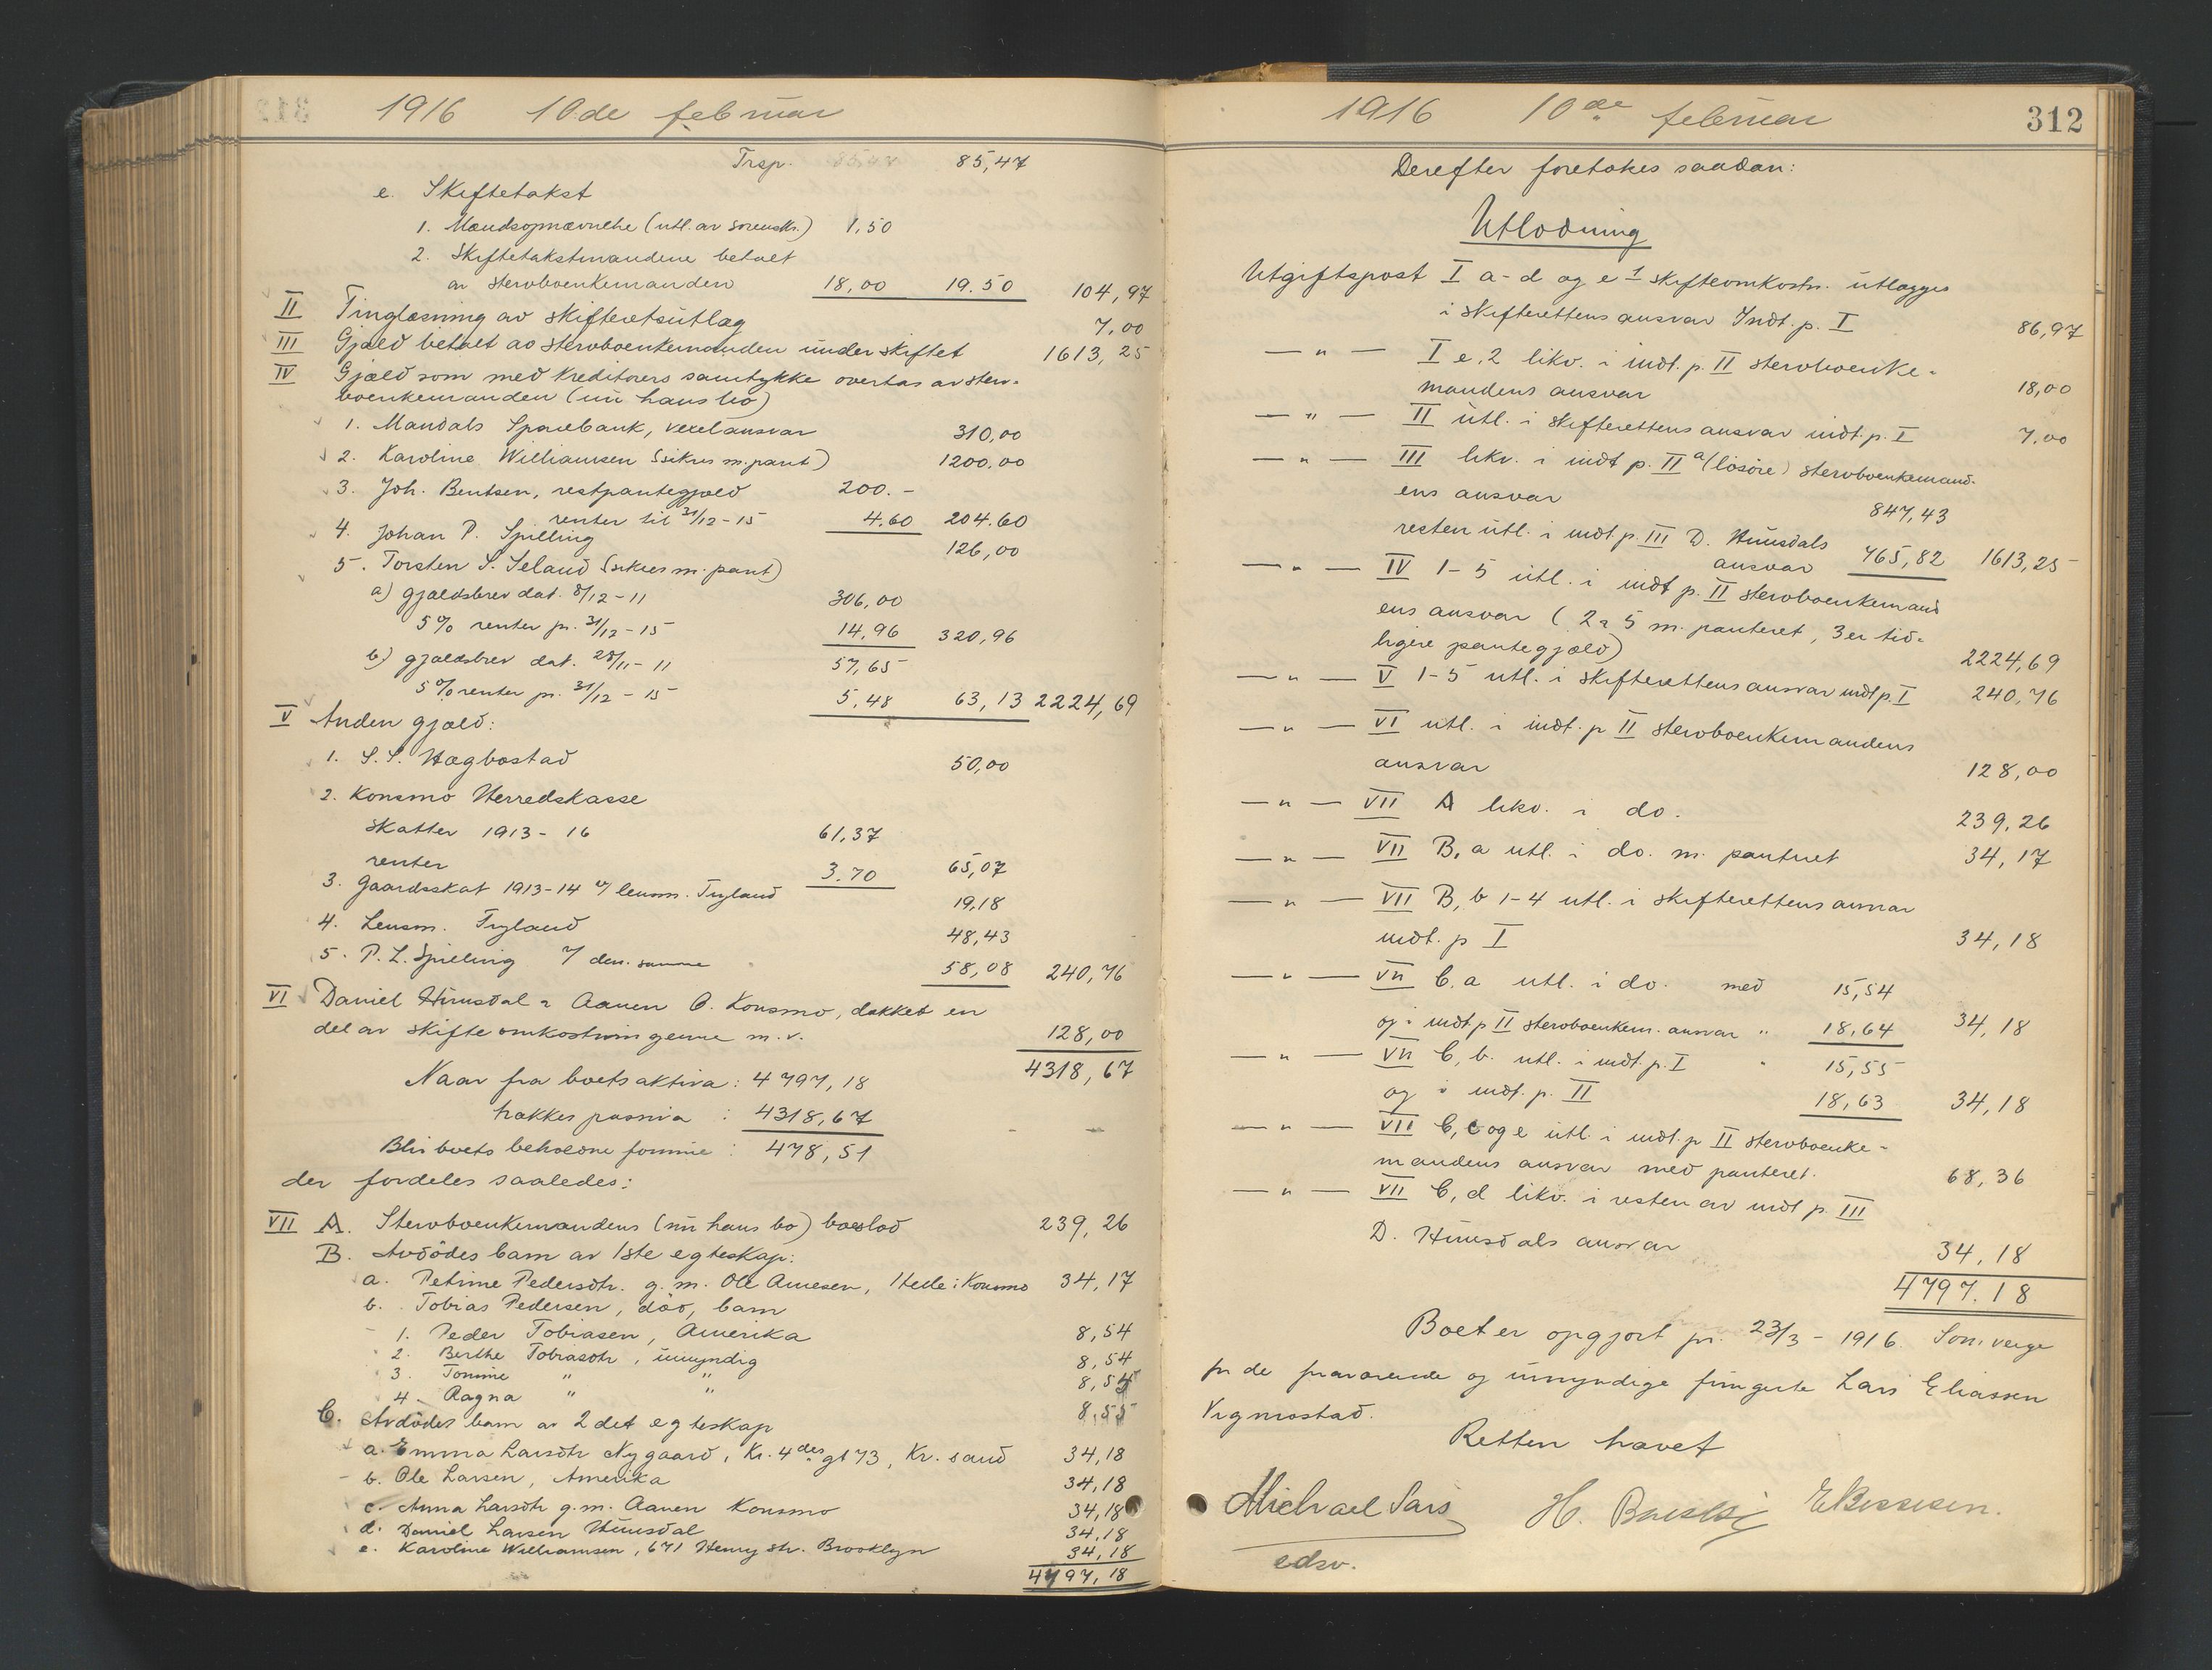 1916 10de februar
Trsp. 85,47
e. Skiftetakst
1. Mandsopnævnelse (utl. av sorenskr.) 1,50
2. Skiftetakstmændene betalt
av stervboenkemanden 18,00 19.50 104,97
II Tinglæsning av skifteretsutlæg 7,00
III Gjæld betalt av stervboenkemanden under skiftet 1613,25
IV Gjæld som med kreditorers samtykke overtas av sterv-
boenkemanden (nu hans bo)
1. Mandals Sparebank, vexelansvar 310,00
2. Karoline Williamsen (sikres m. pant) 1200.00
3. Joh. Bentsen, restpantegjæld 200.-
renter til 31/12-15 4.60 204.60
4. Johan P. Spilling 126,00
5. Torsten S. Seland (sikres m. pant)
a) gjældsbrev dat. 8/12-11 306,00
5% renter pr. 31/12-15 14,96 320,96
b) gjældsbrev dat. 28/11-11 57,65
5% renter pr. 31/12-15 5,48 63,13 2224,69
V Anden gjæld:
1. S. S. Hægbostad 50,00
2. Konsmo Herredskasse
skatter 1913-16 61,37
renter 3.70 65,07
3. Gaardsskat 1913-14 v/ lensm. Tryland 19,18
4. Lensm. Tryland 48,43
5. P. L. Spilling v/ den samme 58,08 240,76
VI Daniel Huusdal & Aanen O. Konsmo, dækket en
del av skifteomkostningerne m.v. 128,00
4318,67
Naar fra boets aktiva: 4797,18
trækkes passiva : 4318,67
Blir boets beholdne formue : 478,51
der fordeles saaledes:
VII A. Stervboenkemandens (nu hans bo) boeslod 239,26
B. Avdødes barn av 1ste egteskap:
a. Petrine Pedersdtr. g. m. Ole Arnesen, Stedle i Konsmo 34,17
b. Tobias Pedersen, død, barn
1. Peder Tobiasen, Amerika 8,54
2. Berthe Tobiasdtr, umyndig 8,54
3. Tomine " " 8,55
4. Ragna " " 8,55
C. Avdødes barn av 2det egteskap
a. Emma Larsdtr Nygaard, Kr. 4des gt 73, Kr. sand 34,18
b. Ole Larsen, Amerika 34,18
c. Anna Larsdtr g. m. Aanen Konsmo 34,18
d. Daniel Larsen Huusdal 34,18
e. Karoline Williamsen, 671 Henry str. Brooklyn 34,18
4797,18
1916 10de februar 312
Derefter foretokes saadan:
Utlodning
Utgiftspost I a-d og e 1 skifteomkostn. utlægges
i skifterettens ansvar Indt. p. I 86,97
— " — I e.2 likv. i indt. p. II stervboenke-
mandens ansvar 18,00
— " — II utl. i skifterettens ansvar indt. p. I 7,00
— " — III likv. i indt p. II a (løsøre) stervboenkemand-
ens ansvar 847,43
resten utl. i indt. p. III D. Huusdals
ansvar 765,82 1613,25
— " — IV 1-5 utl. i indt p. II stervboenkemand
ens ansvar (2 & 5 m. panteret, 3 er tid-
ligere pantegjæld) 2224,69
— " — V 1-5 utl. i skifterettens ansvar indt p. I 240,76
— " — VI utl. i indt. p II stervboenkemandens
ansvar 128,00
— " — VII A likv. i do. 239,26
— " — VII B, a utl. i do. m. panteret 34,17
— " — VII B, b 1-4 utl. i skifterettens ansvar
indt. p I 34,18
— " — VII C. a utl. i do. med 15,54
og i indt p II stervboenkem. ansvar " 18,64 34,18
— " — VII C, b. utl. i indt. p. I " 15,55
og i indt. p. II 18,63 34,18
— " — VII C, c og e utl. i indt. p II stervboenke-
mandens ansvar med panteret. 68,36
— " — VII C, d likv. i resten av indt p. III
D. Huusdals ansvar 34,18
4797.18
Boet er opgjort pr. 23/3-1916. Som verge
for de fraværende og umyndige fungerte Lars Eliassen
Vigmostad.
Retten hævet
Michael Sars H.
edsv.